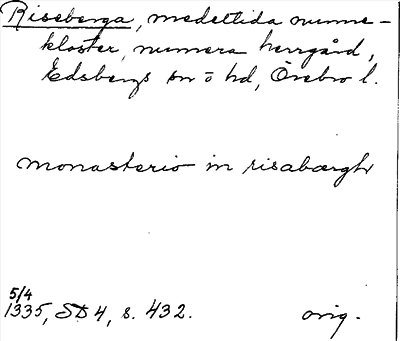 Riseberga, medeltida nunne-
kloster, numera herrgård,
Edsbergs sn o hd, Örebro l.
monasterio in risabærghr
5/4
1335, SD 4, s. 432. orig.